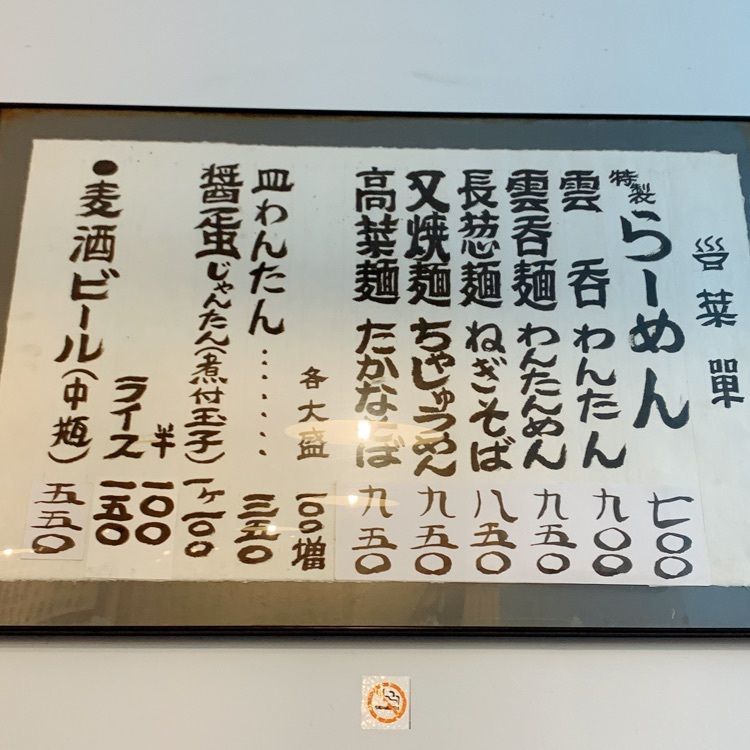 菜單
特製らーめん 七〇〇
雲呑 わんたん 九〇〇
雲呑麺 わんたんめん 九五〇
長葱麺 ねぎそば 八五〇
叉焼麺 ちゃじゅうめん 九五〇
高菜麺 たかなそば 九五〇
各大盛 一〇〇増
皿わんたん・・・・・・・ 三五〇
醤蛋じゃんたん(煮付玉子) 一ヶ一〇〇
半 一〇〇
ライス 一五〇
●麦酒ビール(中瓶) 五五〇